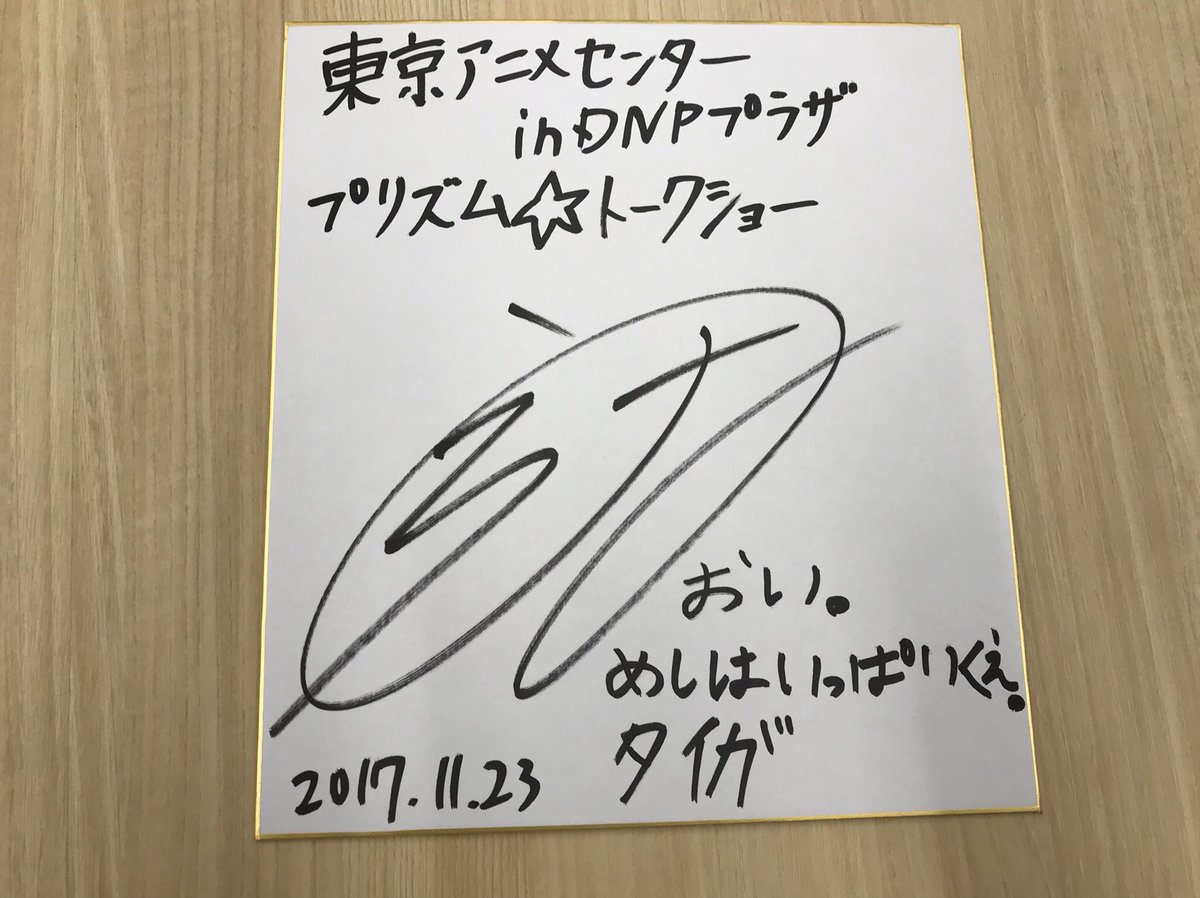 東京アニメセンター
inDNPプラザ
プリズム☆トークショー
おい。
めしはいっぱいくえ。
タイガ
2017.11.23